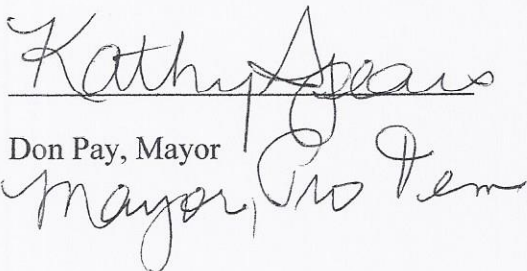 Kathy Spears
Don Pay, Mayor
Mayor, Pro Tem